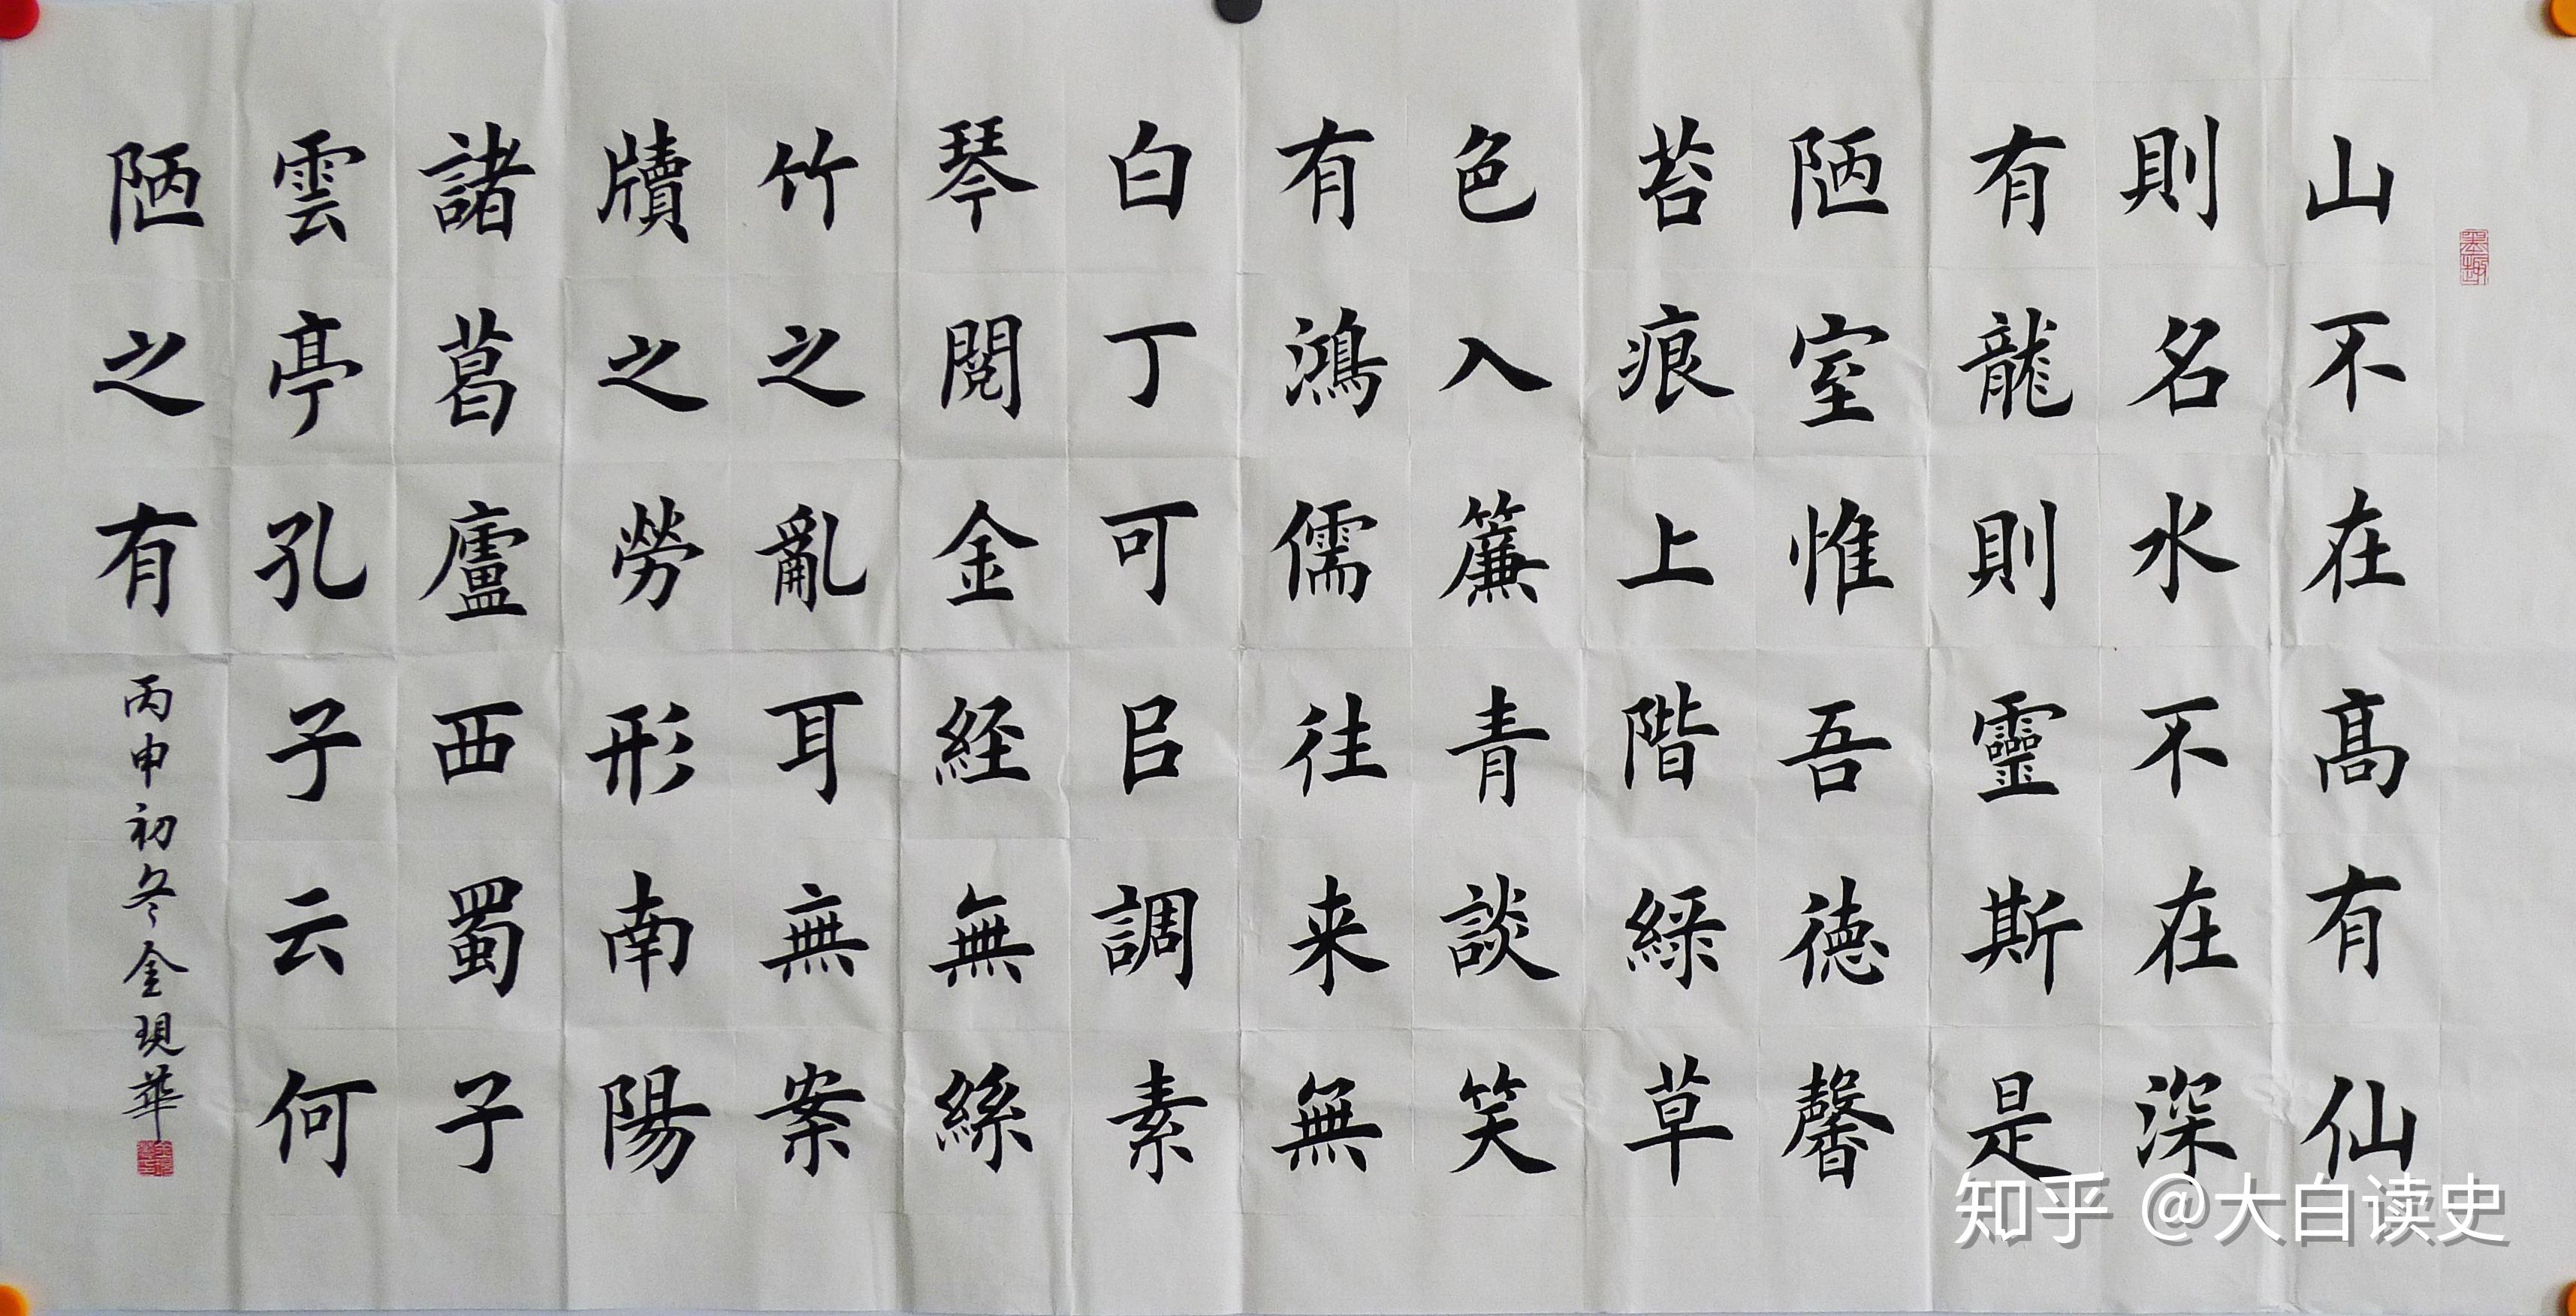 山不在高有仙
則名水不在深
有龍則靈斯是
陋室惟吾德馨
苔痕上階綠草
色入簾青談笑
有鴻儒往来無
白丁可㠯調素
琴閱金経無絲
竹之亂耳無案
牘之勞形南陽
諸葛廬西蜀子
雲亭孔子云何
陋之有
丙申初冬金現華
墨趣
知乎 @大白读史